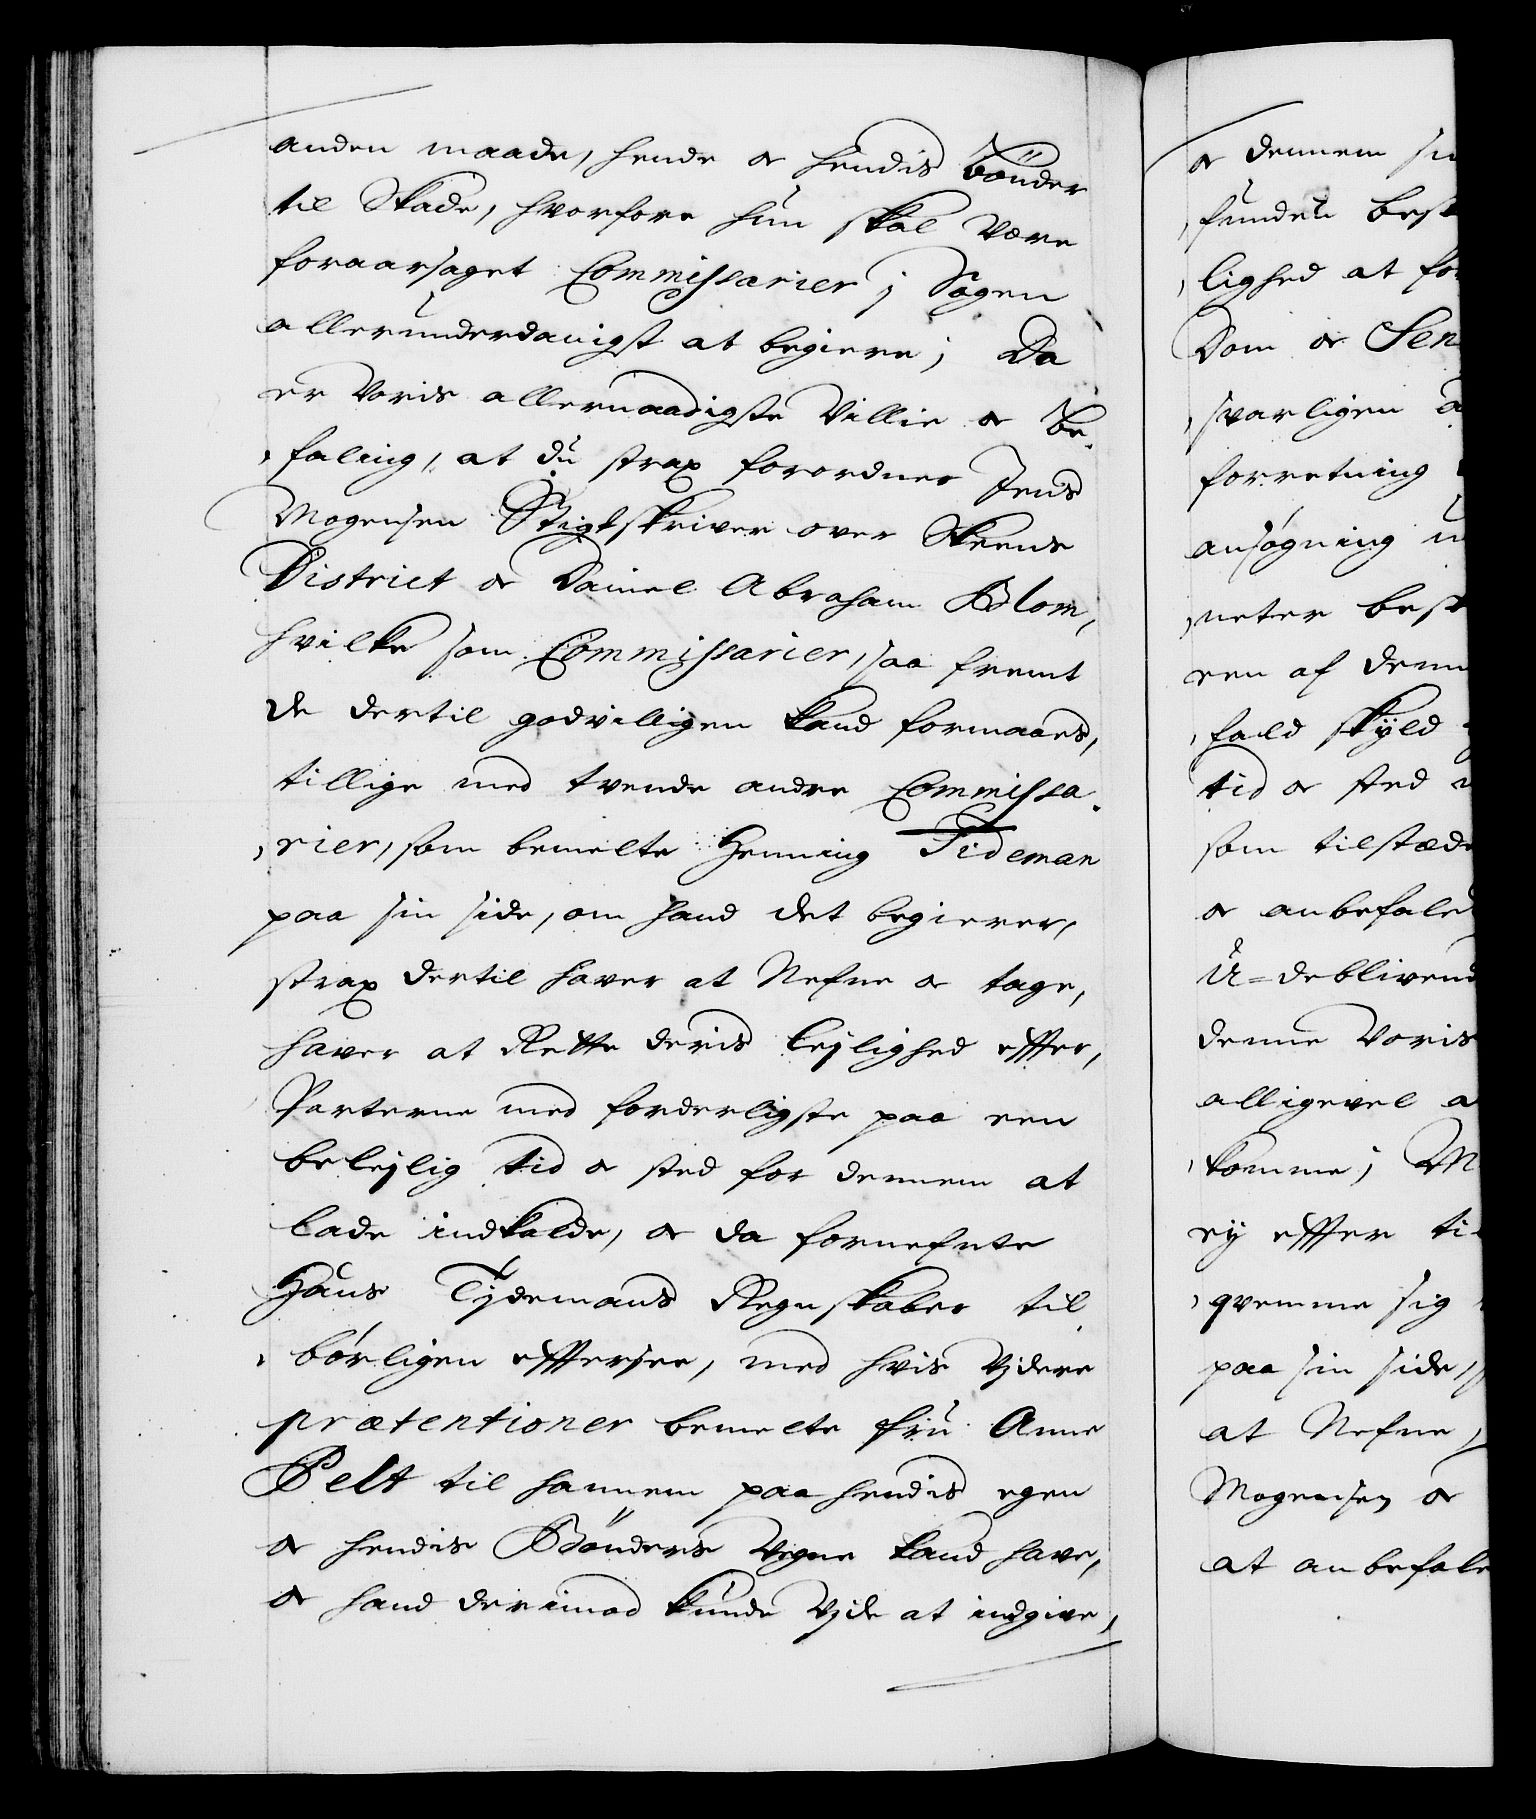 anden maade, hende or hendis Bönder
til Skade, hvorfore hun skal være
foraarsaget Commissarier i Sagen
allerunderdanigst at begiere; Da
er Voris allernaadigste Villie or be¬
faling, at du strax forordner Jens
Mogensen Stigtskriver over Skeens
District or Daniel Abraham Blom,
hvilke som Commissarier, saa fremt
de dertil godvilligen kand formaaes,
tillige med tvende andre Commissa¬
rier, som bemelte Henning Tideman
paa sin side, om hand det begierer,
strax dertil haver at Nefne or tage,
haver at Rette deris lejlighed effter,
Parterne med forderligste paa een
belejlig tid or sted for dennem at
lade indkalde, or da fornefnte
Hans Tydemans Regnskaber til¬
børligen effersee, med hvis Vjdere
prætentioner bemelte fru Anne
Pelt til hannem paa hendis egen
or hendis Bönders Vegne kand have,
or hand derimod kunde Vjde at indgive,
or dennem
funden
lighed at
Dom or
svarligen
forretning
ansøgning

een af
fald skyld
tid or sted
som
or
U=deblivend
denne Voris
alligevel
komme;
ey effter
qvemme sig
paa sin side,
at Nefne,
Mogensen or
at anbefale